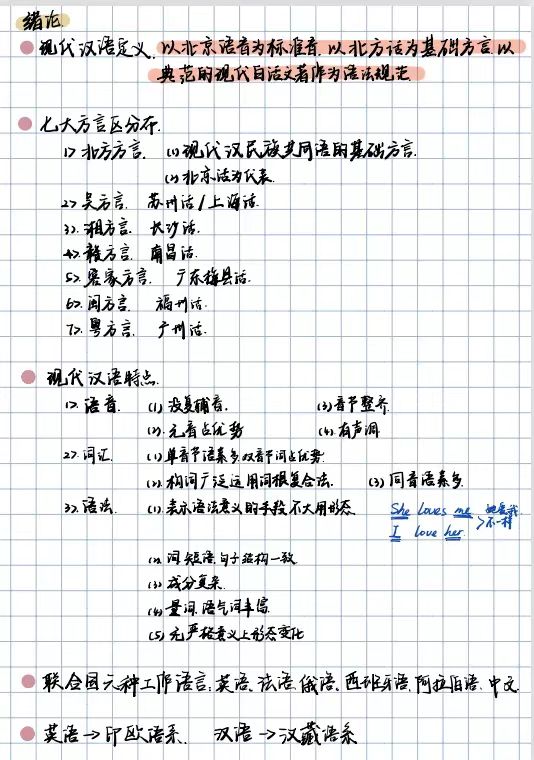 绪论.
现代汉语定义. 以北京语音为标准音.以北方话为基础方言.以
典范的现代白话文著作为语法规范
七大方言区分布.
1> 北方方言. (1) 现代汉民族共同语的基础方言.
(2) 北京话为代表.
2> 吴方言. 苏州话/上海话.
3> 湘方言. 长沙话.
4> 赣方言. 南昌话.
5> 客家方言. 广东梅县话.
6> 闽方言. 福州话.
7> 粤方言. 广州话.
现代汉语特点.
1> 语音. (1) 没复辅音. (3) 音节整齐.
(2) 元音占优势 (4) 有声调
2> 词汇. (1) 单音节语素多.双音节词占优势.
(2) 构词广泛运用词根复合法. (3) 同音语素多.
3> 语法. (1) 表示语法意义的手段不大用形态 She loves me 她爱我
I love her > 不一样
(2) 词.短语.句子结构一致
(3) 成分复杂
(4) 量词.语气词丰富
(5) 无严格意义上形态变化
联合国六种工作语言: 英语.法语.俄语.西班牙语.阿拉伯语.中文
英语→印欧语系. 汉语→汉藏语系